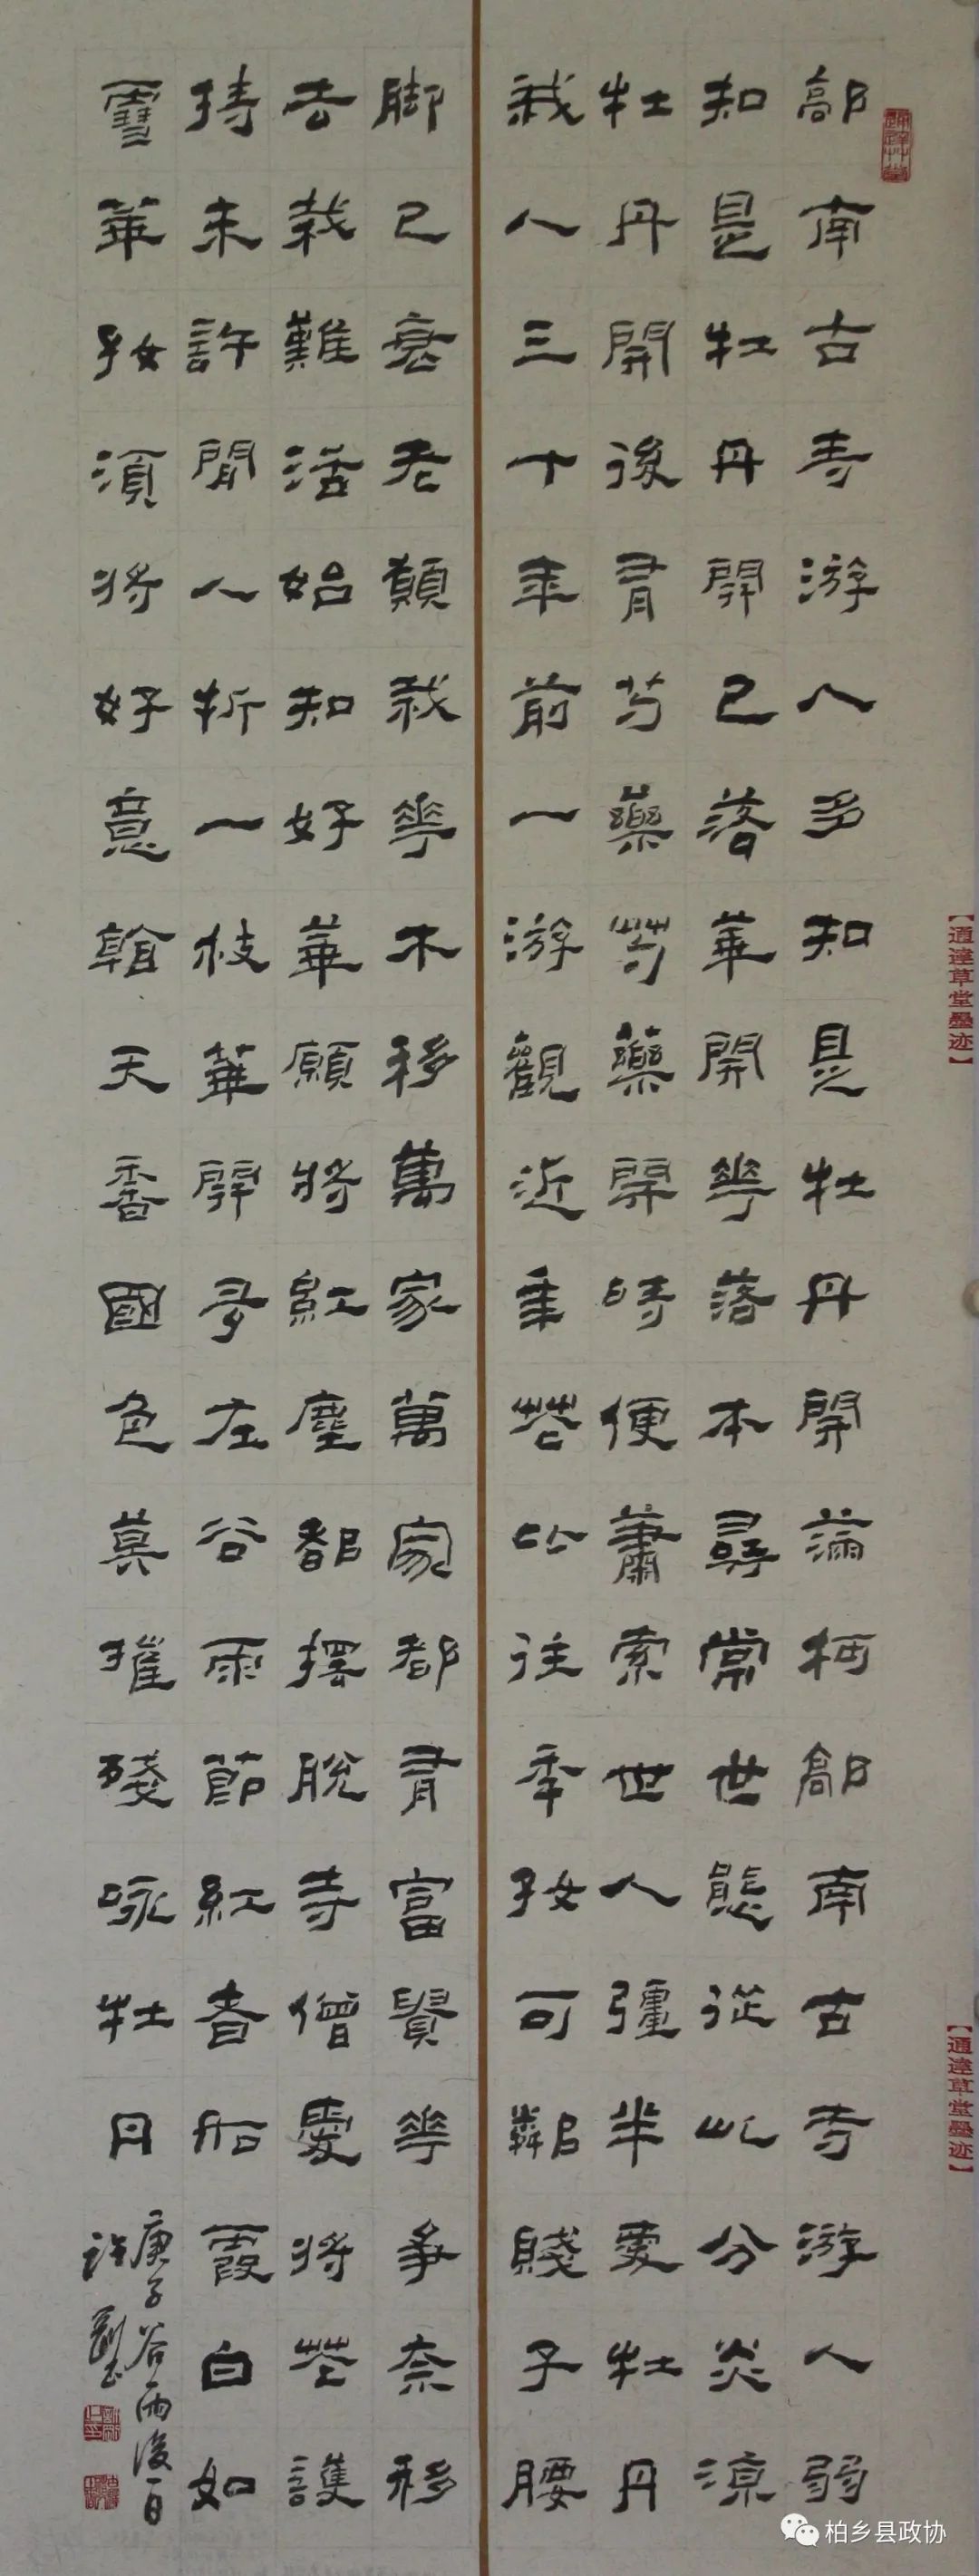 鄗南古寺游人多知是牡丹開滿柯鄗南古寺游人弱
知是牡丹開已落華開花落本尋常世態從此分炎涼
牡丹開後有芍藥芍藥開時便蕭索世人彊半愛牡丹
我人三十年前一游觀近年花比往年好可鄰賤子腰
脚已衰老顛我花木移萬家萬家都有富貴花爭奈移
去栽難活始知好華願將紅塵都擺脫寺僧愛將花護
持未許閒人折一枝華開多在谷雨節紅者霞白如
雪華好須將好意看天香國色莫摧殘咏牡丹
庚子谷雨後一日
【通達草堂墨迹】
【通達草堂墨迹】
柏乡县政协